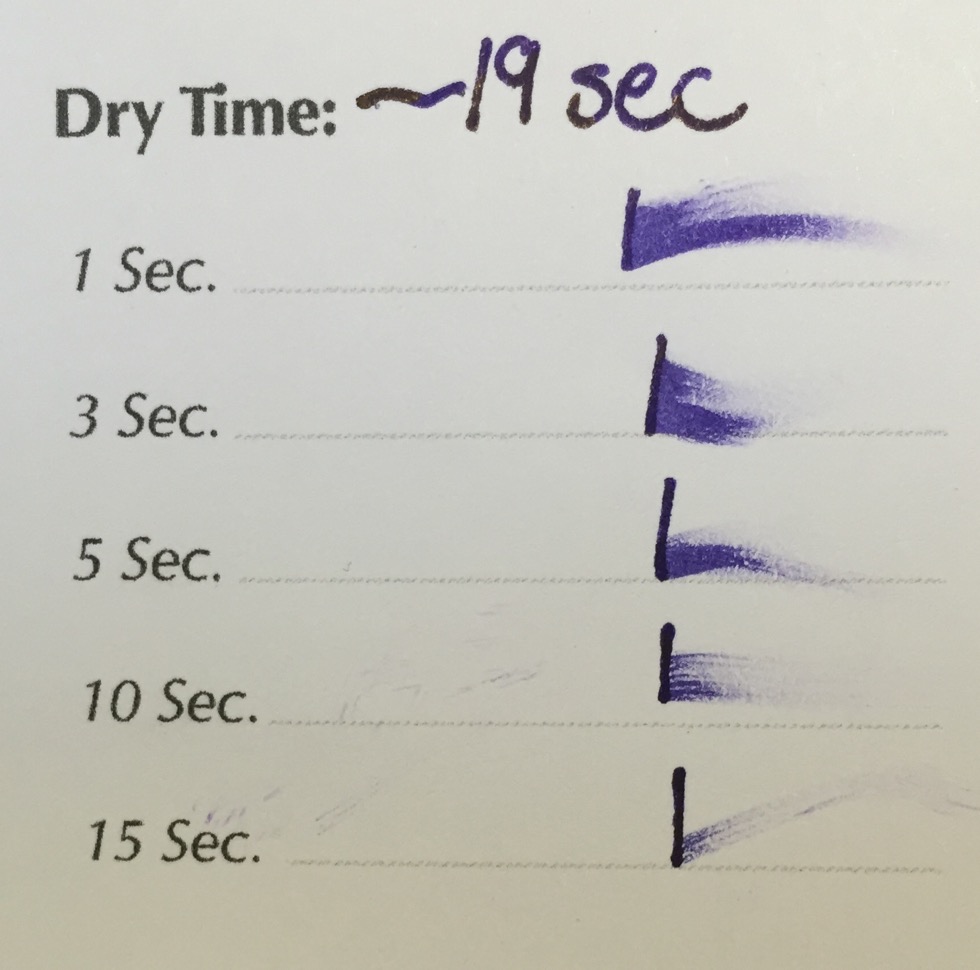 Dry Time: ~19 sec
1 Sec.
3 Sec.
5 Sec.
10 Sec.
15 Sec.